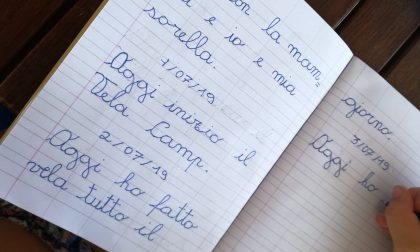 on la mam=
a e io e mia
sorella.
1/07/19
Oggi inizio il
Vela Camp.
2/07/19
Oggi ho fatto
vela tutto il
giorno.
3/07/19
Oggi ho